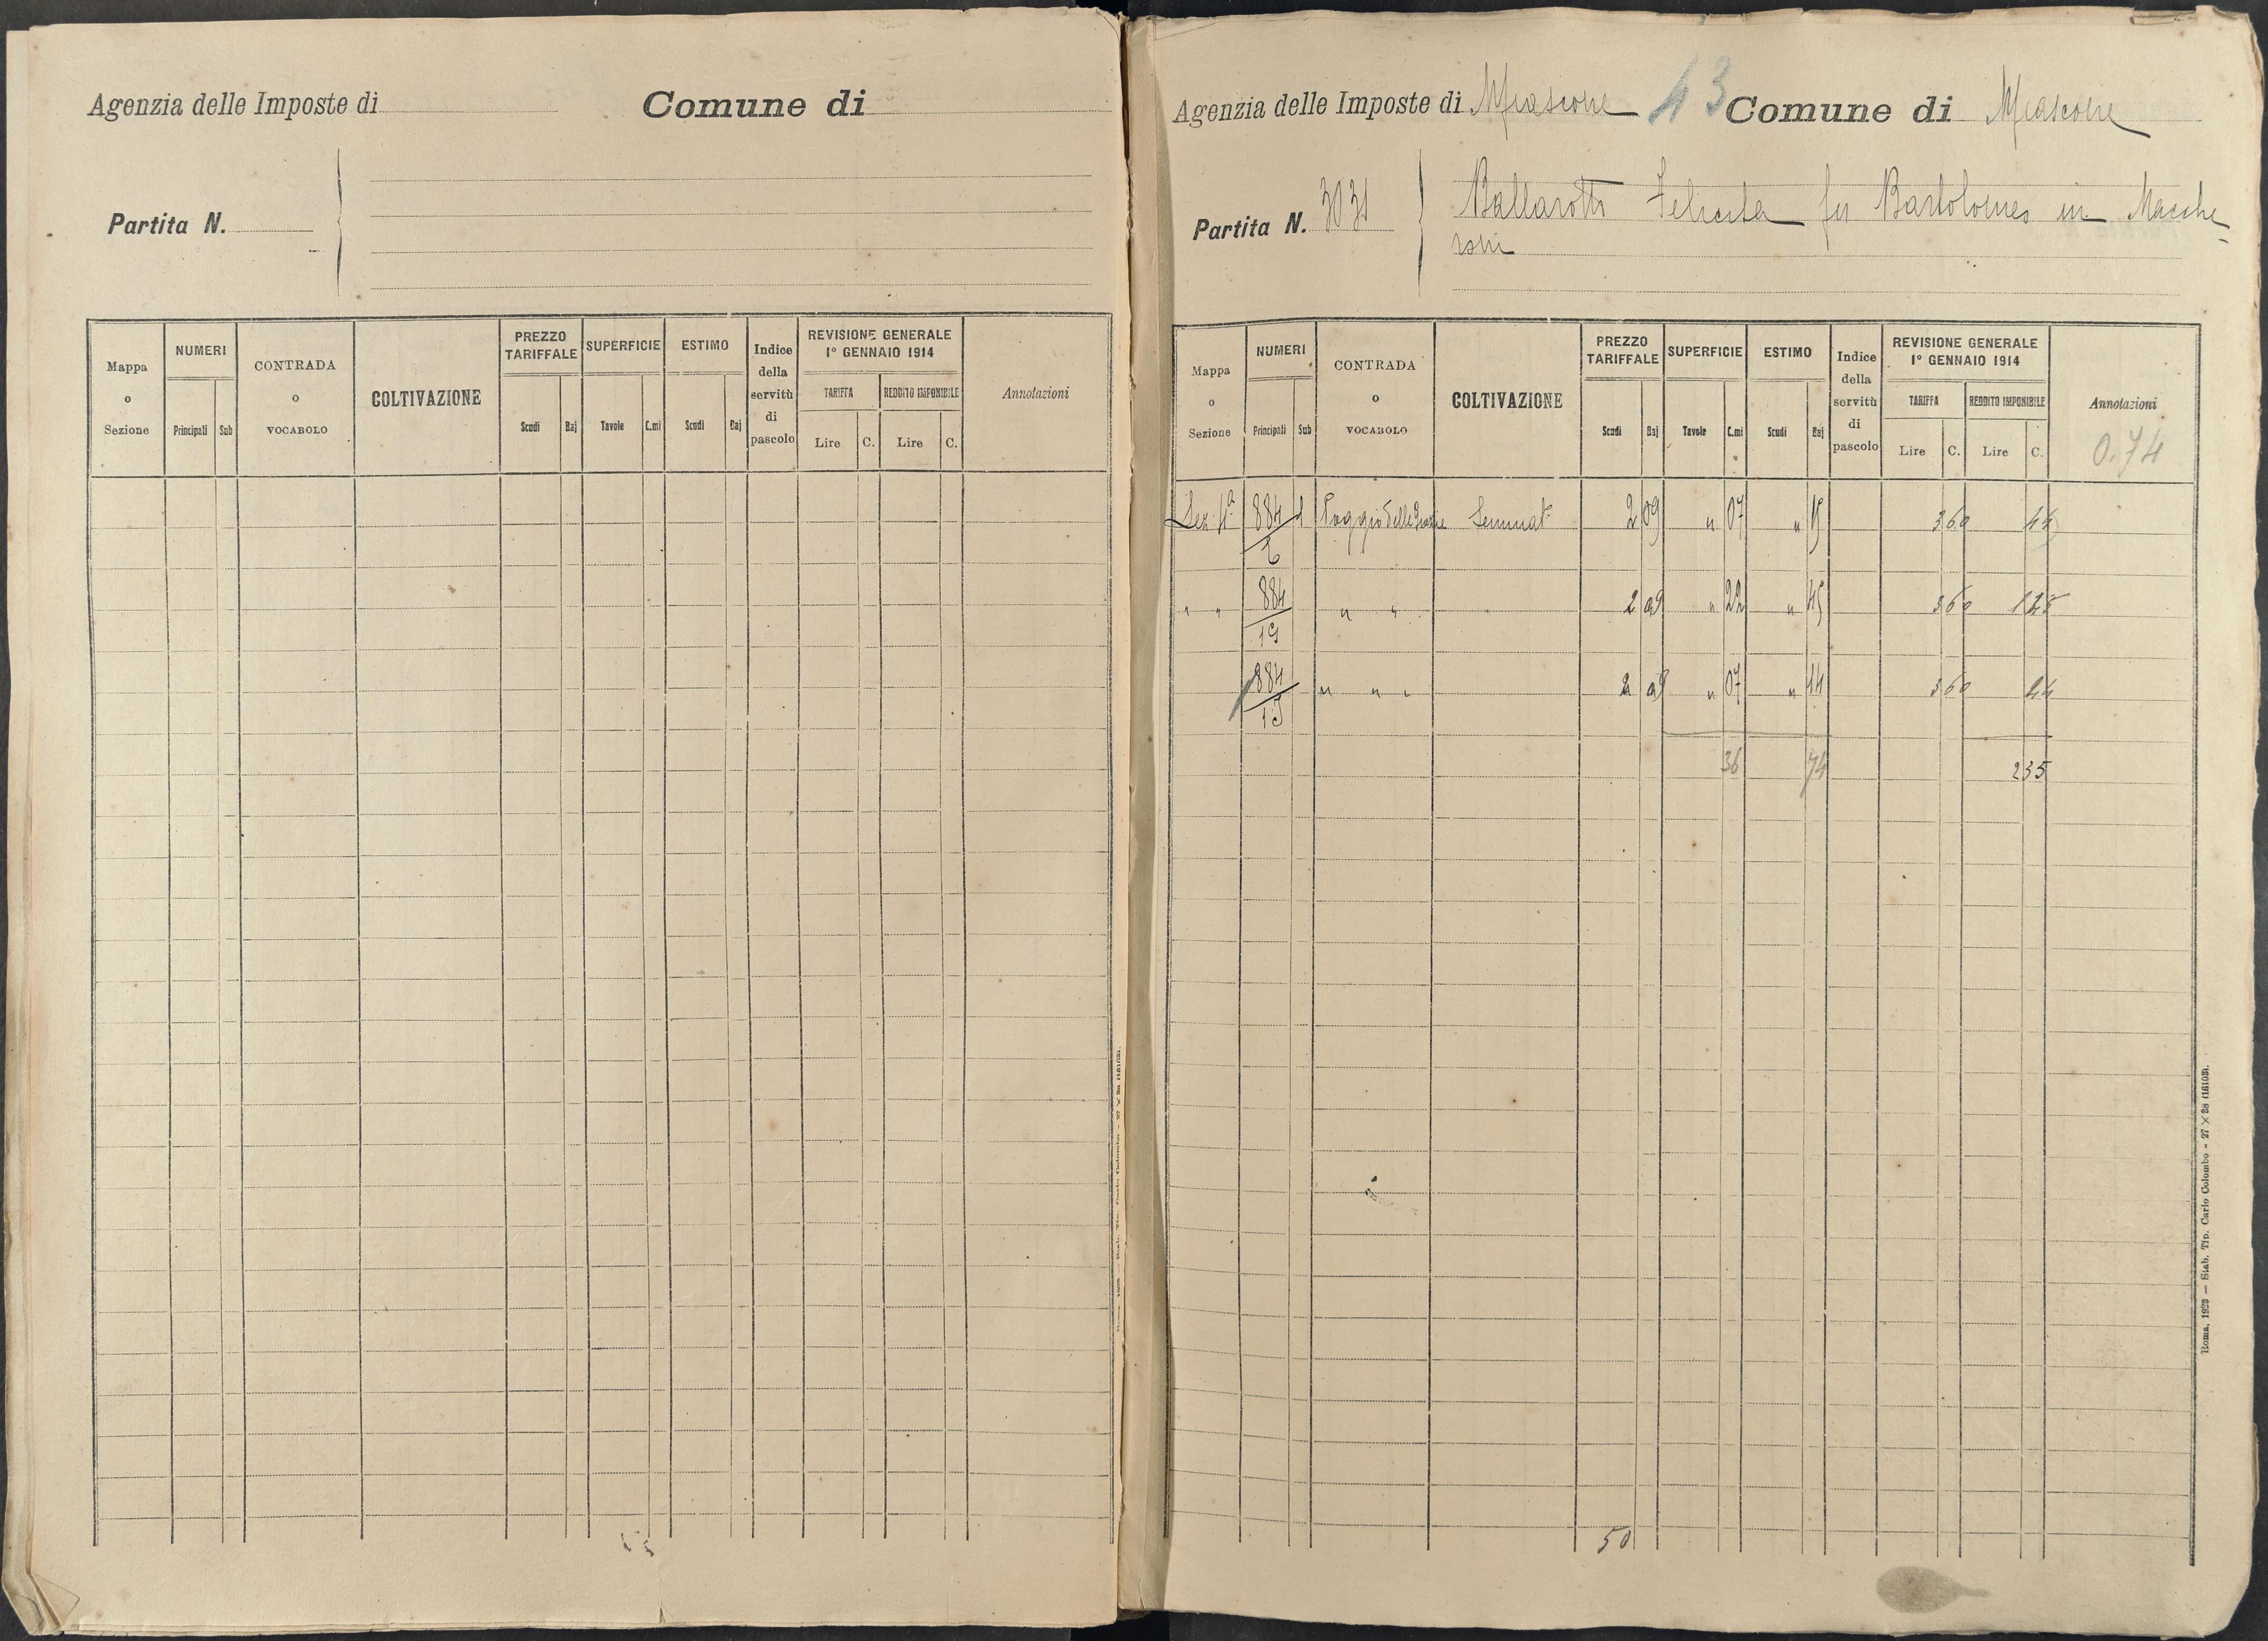 Agenzia delle Imposte di
Comune di
Partita N.
Mappa o Sezione
NUMERI
Principali
Sub
CONTRADA o VOCABOLO
COLTIVAZIONE
PREZZO TARIFFALE
Scudi
Baj
SUPERFICIE
Tavole
C.mi
ESTIMO
Scudi
Baj
Indice della servitù di pascolo
REVISIONE GENERALE
1° GENNAIO 1914
TARIFFA
Lire
C.
REDDITO IMPONIBILE
Lire
C.
Annotazioni
Agenzia delle Imposte di
43
Comune di
Partita N. 3031
Ballarotti Felicita fu Bartolomeo in Macche-
roni
Mappa o Sezione
NUMERI
Principali
Sub
CONTRADA o VOCABOLO
COLTIVAZIONE
PREZZO TARIFFALE
Scudi
Baj
SUPERFICIE
Tavole
C.mi
ESTIMO
Scudi
Baj
Indice della servitù di pascolo
REVISIONE GENERALE
1° GENNAIO 1914
TARIFFA
Lire
C.
REDDITO IMPONIBILE
Lire
C.
Annotazioni
0.74
Sez. 4ª 884/6 1 Poggio delle Seminat. 2 09 " 07 " 15 3 60 44
" " 884/19 " " 2 09 " 22 " 45 3 60 1 25
884/15 " " " 2 09 " 07 " 14 3 60 44
36 74 2 35
50
Roma, 1923 — Stab. Tip. Carlo Colombo - 27 × 38 (16103).